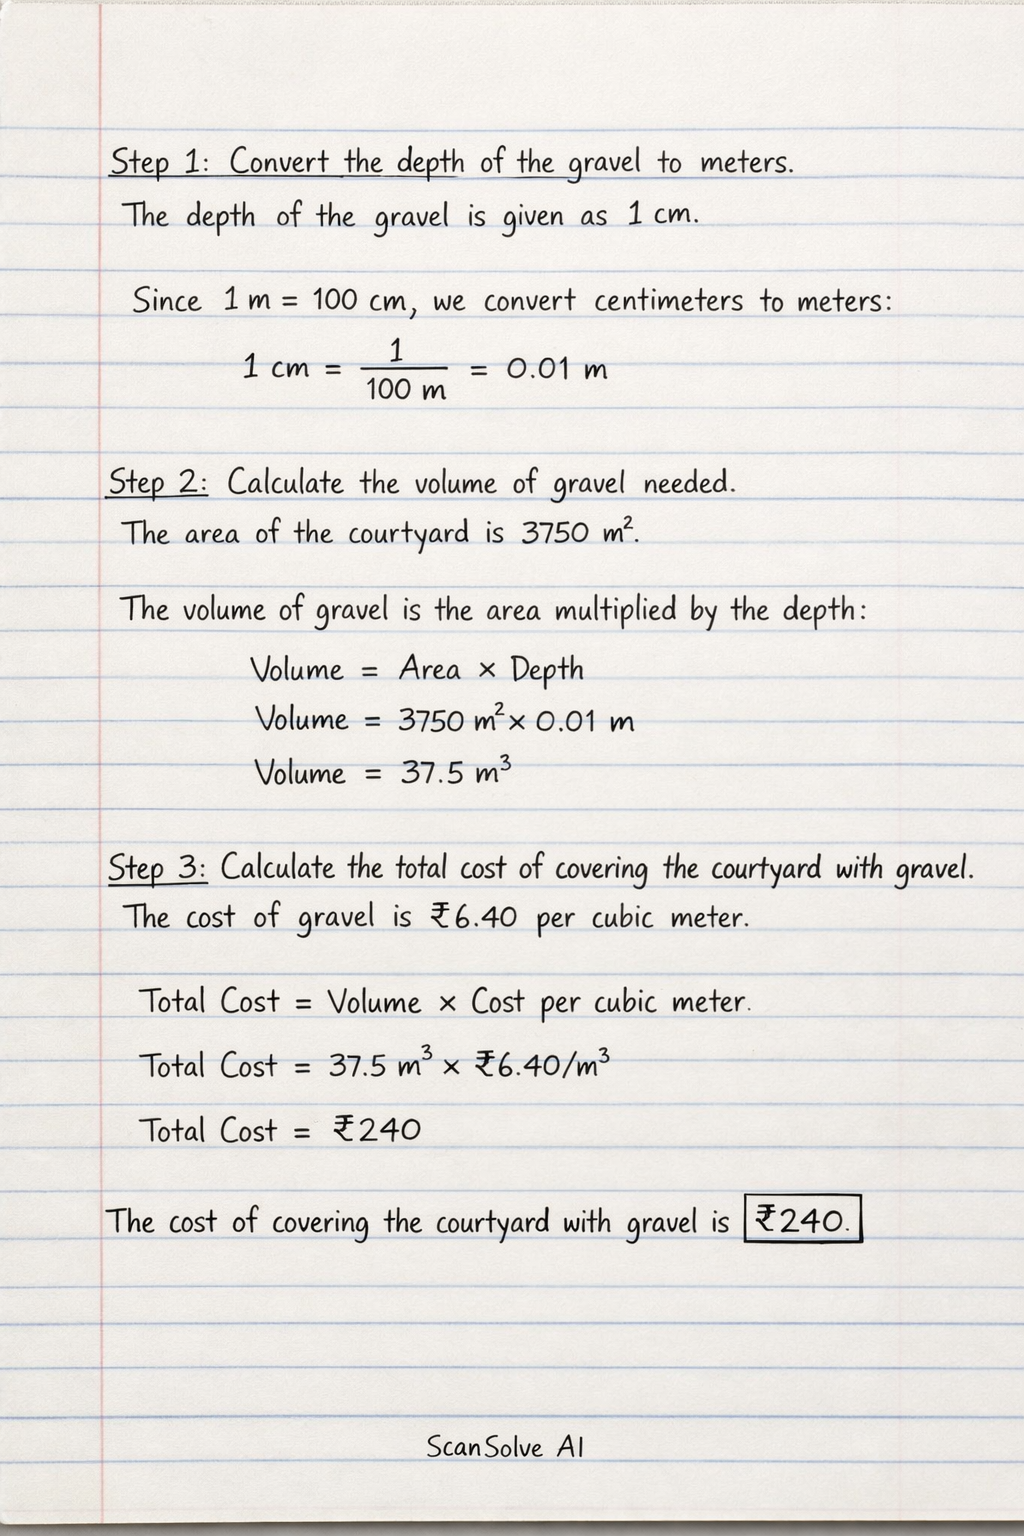 Step 1: Convert the depth of the gravel to meters.
The depth of the gravel is given as 1 cm.
Since 1 m = 100 cm, we convert centimeters to meters:
1 cm = 1 / 100 m = 0.01 m
Step 2: Calculate the volume of gravel needed.
The area of the courtyard is 3750 m².
The volume of gravel is the area multiplied by the depth:
Volume = Area × Depth
Volume = 3750 m² × 0.01 m
Volume = 37.5 m³
Step 3: Calculate the total cost of covering the courtyard with gravel.
The cost of gravel is ₹6.40 per cubic meter.
Total Cost = Volume × Cost per cubic meter.
Total Cost = 37.5 m³ × ₹6.40/m³
Total Cost = ₹240
The cost of covering the courtyard with gravel is ₹240.
ScanSolve AI